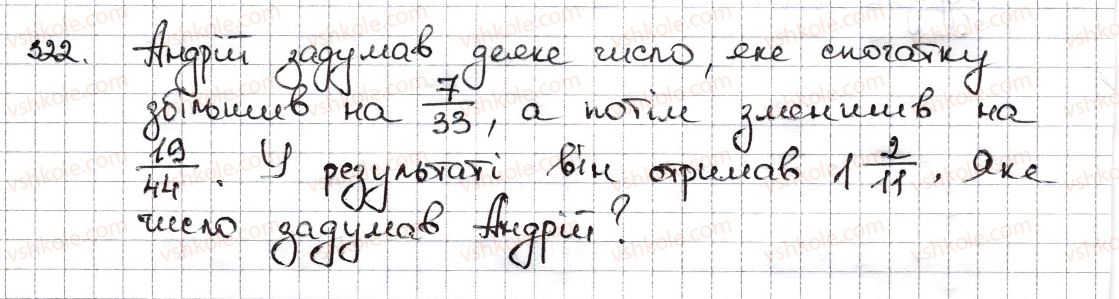 322. Андрій задумав деяке число, яке спочатку
збільшив на 7/33, а потім зменшив на
19/44. У результаті він отримав 1 2/11. Яке
число задумав Андрій?